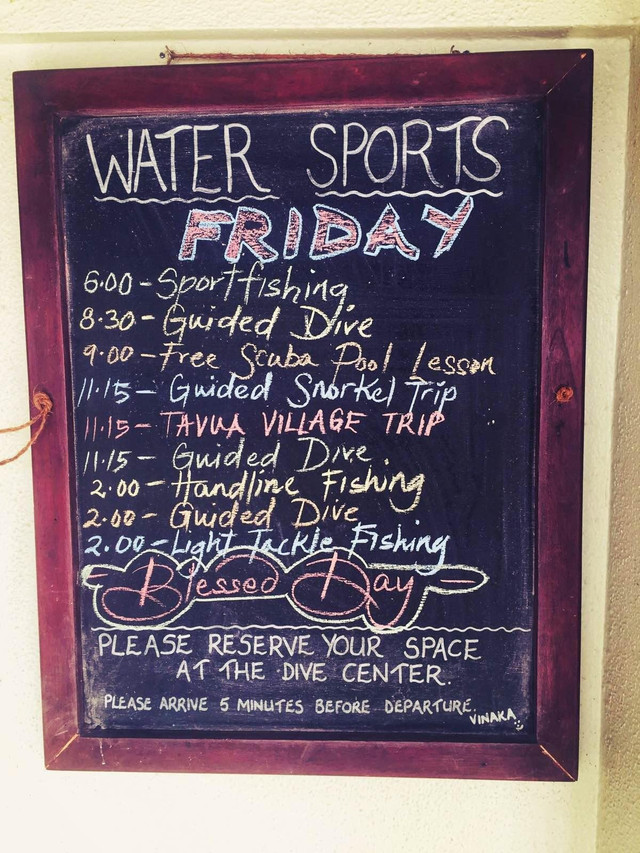 WATER SPORTS
FRIDAY
6.00 - Sportfishing.
8.30 - Guided Dive
9.00 - Free Scuba Pool Lesson
11.15 - Guided Snorkel Trip
11.15 - TAVUA VILLAGE TRIP
11.15 - Guided Dive.
2.00 - Handline Fishing
2.00 - Guided Dive
2.00 - Light Tackle Fishing
Blessed Day
PLEASE RESERVE YOUR SPACE
AT THE DIVE CENTER.
PLEASE ARRIVE 5 MINUTES BEFORE DEPARTURE.
VINAKA